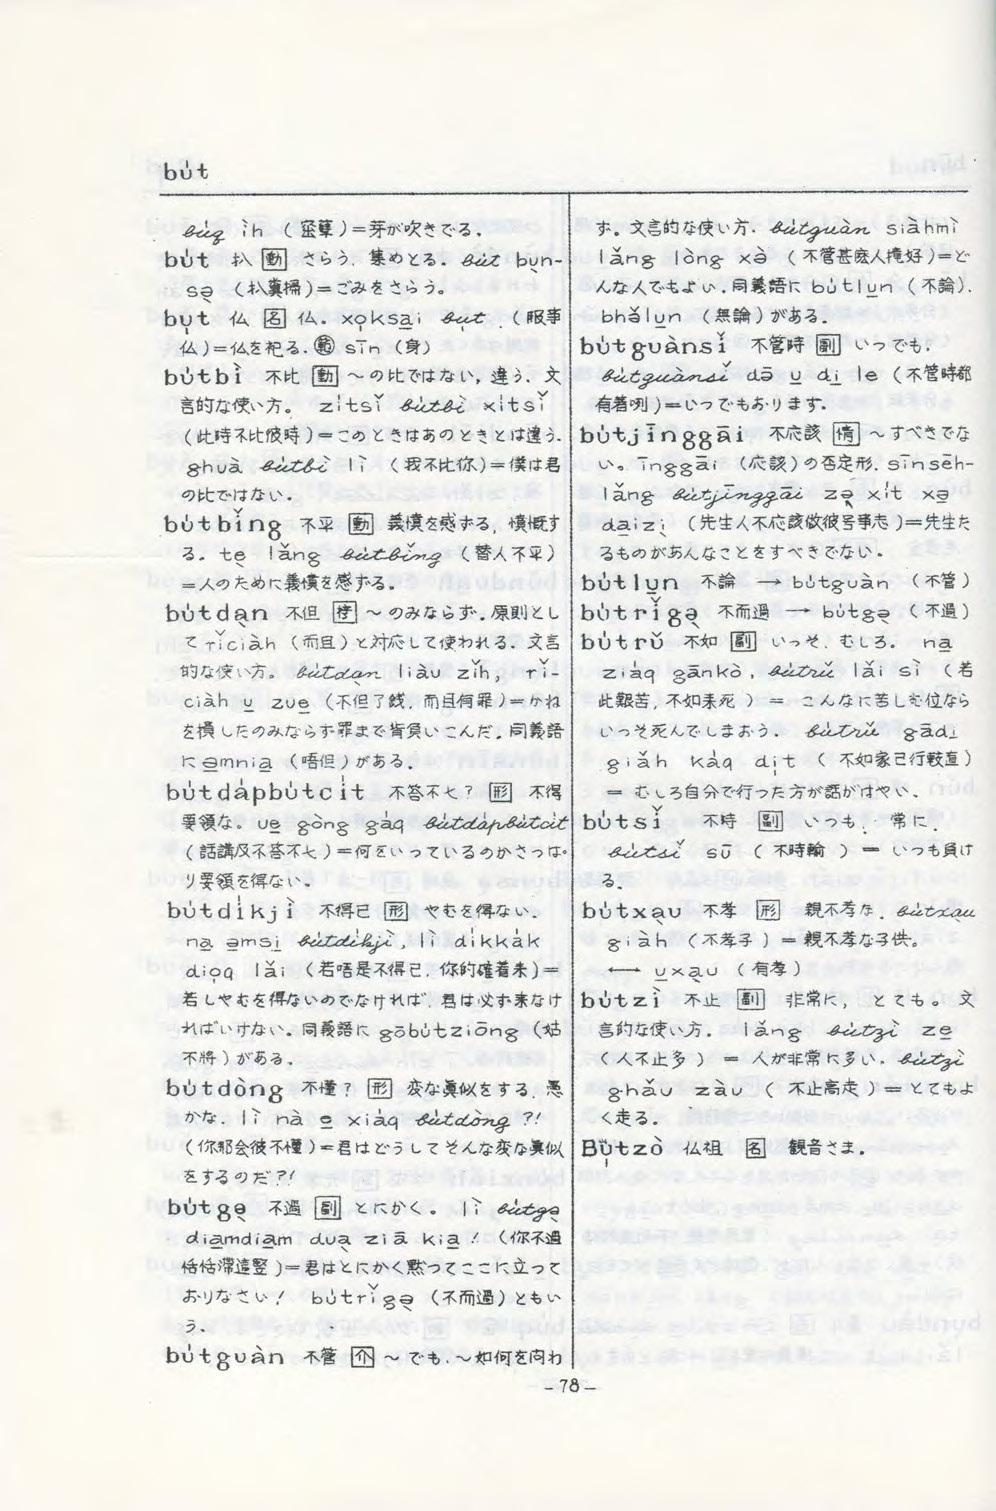 bu̍t
bu̍q ı̀h (蛩䓟)=芽が吹きでる。
bu̍t 扒 動 さらう. 集めとる。bu̍t bu̱n-
sə̱ (扒糞掃)=ごみをさらう。
bu̱t 仏 名 仏. xo̱ksa̱i bu̱t (服事
仏)=仏を祀る. sīn (身)
bu̍tbì 不比 動 ～の比ではない, 違う. 文
言的な使い方。 zı̍tsǐ bu̍tbì xı̍tsǐ
(此時不比彼時)=このときはあのときとは違う.
ghuà bu̍tbì lì (我不比你)=僕は君
の比ではない.
bu̍tbǐng 不平 動 義憤を感ずる, 憤慨す
る. te̱ lǎng bu̍tbǐng (替人不平)
=人のために義憤を感ずる。
bu̍tda̱n 不但 接 ～のみならず. 原則とし
て rǐciàh (而且)と対応して使われる. 文言
的な使い方。 bu̍tda̱n liàu zǐh, rǐ-
ciàh u̱ zue̱ (不但了銭, 而且有罪)=かね
を損したのみならず罪まで背負いこんだ. 同義語
に a̱mnia̱ (唔但)がある.
bu̍tda̍pbu̍tcı̍t 不答不七? 形 不得
要領な. ue̱ gòng gàq bu̍tda̍pbu̍tcı̍t
(話講及不答不七)=何をいっているのかさっぱ
り要領を得ない.
bu̍tdı̍kjì 不得已 形 やむを得ない.
na̱ a̱msi̱ bu̍tdı̍kjì, lì dı̍kka̍k
dio̱q lǎi (若唔是不得已, 你的確着来)=
若しやむを得ないのでなければ, 君は必ず来なけ
ればいけない. 同義語に gōbu̍tziōng (姑
不將)がある.
bu̍tdòng 不懂? 形 変な眞似をする. 愚
かな. lì nà e̱ xiàq bu̍tdòng ?!
(你那会彼不懂)=君はどうしてそんな変な眞似
をするのだ?!
bu̍tgə̱ 不過 副 とにかく. lì bu̍tgə̱
dia̱mdia̱m dua̱ ziā kia̱! (你不過
恬恬滯這竪)=君はとにかく黙ってここに立って
おりなさい! bu̍trǐgə̱ (不而過)ともい
う.
bu̍tguàn 不管 介 ～でも. ～如何を向わ
す. 文言的な使い方. bu̍tguàn siàhmì
lǎng lòng xə̀ (不管甚麼人攏好)=ど
んな人でもよい. 同義語に bu̍tlu̱n (不論).
bhə̌lu̱n (無論)がある.
bu̍tguànsǐ 不管時 副 いつでも.
bu̍tguànsǐ dā u̱ di̱ le (不管時都
有著咧)=いつでもあります.
bu̍tjīnggāi 不応該 情 ～すべきでな
い. īnggāi (応該)の否定形. sīnsēh-
lǎng bu̍tjīnggāi zə̱ xı̍t xə̱
da̱izi̱ (先生人不応該做彼号事志)=先生た
るものがあんなことをすべきでない.
bu̍tlu̱n 不論 → bu̍tguàn (不管)
bu̍trǐgə̱ 不而過 → bu̍tgə̱ (不過)
bu̍trǔ 不如 副 いっそ. むしろ. na̱
ziàq gānkò, bu̍trǔ lǎi sì (若
此艱苦, 不如来死) = こんなに苦しむ位なら
いっそ死んでしまおう. bu̍trǔ gādı̱
giǎh kàq dı̱t (不如家己行較直)
= むしろ自分で行った方が話がはやい.
bu̍tsǐ 不時 副 いつも. 常に.
bu̍tsǐ sū (不時輸) = いつも負け
る.
bu̍txa̱u 不孝 形 親不孝な. bu̍txa̱u
giàh (不孝子) = 親不孝な子供.
←→ u̱xa̱u (有孝)
bu̍tzì 不止 副 非常に, とても。文
言的な使い方. lǎng bu̍tzì ze̱
(人不止多) = 人が非常に多い. bu̍tzì
ghǎu zàu (不止高走) = とてもよ
く走る.
Bu̱tzò 仏祖 名 観音さま.
-78-